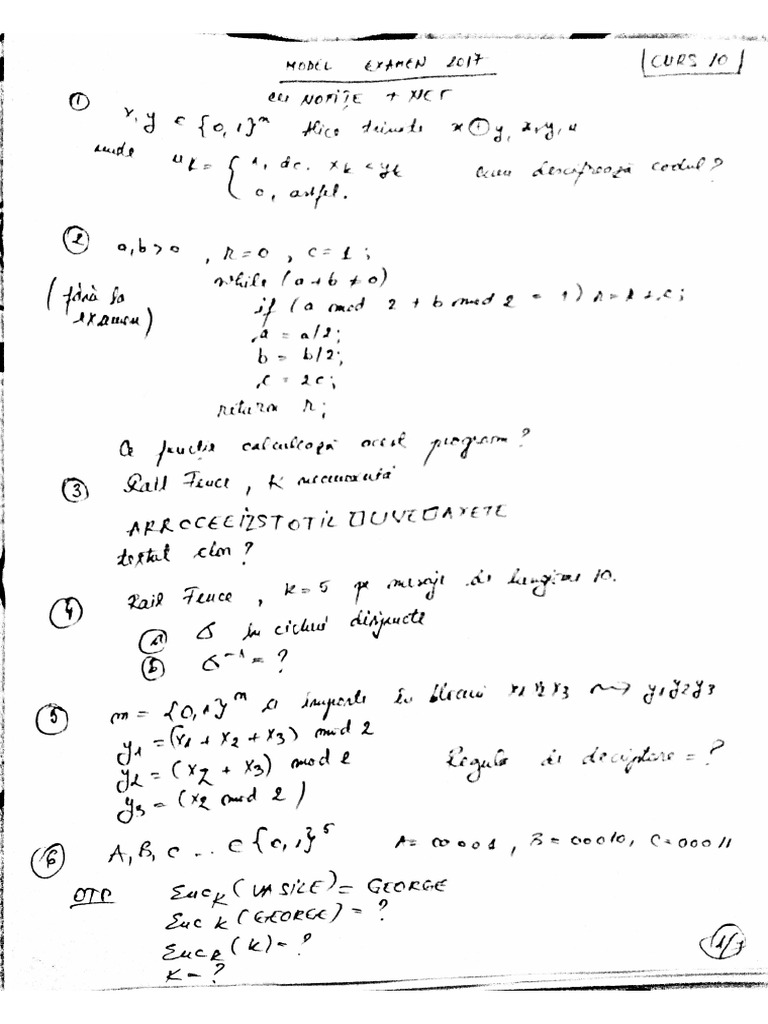 MODEL EXAMEN 2017
CURS 10
cu NOTIȚE + NET
① x, y ∈ {0,1}^n Alice trimite x ⊕ y, x, y, u
unde u_k = { 1, dc. x_k < y_k
0, astfel.
Cum descifrează codul?
② a, b > 0, R = 0, c = 1;
(fără la examen)
while (a + b ≠ 0)
if (a mod 2 + b mod 2 = 1) R = R + c;
a = a/2;
b = b/2;
c = 2c;
return R;
Ce funcție calculează acest program?
③ Rail Fence, K necunoscută
textul clar?
④ Rail Fence, K = 5 pe mesaje de lungime 10.
ⓐ σ în cicluri disjuncte
ⓑ σ^-1 = ?
⑤ m = {0,1}^n se împarte în blocuri x1x2x3 ⟿ y1y2y3
y1 = (x1 + x2 + x3) mod 2
y2 = (x2 + x3) mod 2
y3 = (x2 mod 2)
Regula de decriptare = ?
⑥ A, B, C .. ∈ {0,1}^5 A = 00001, B = 00010, C = 00011
OTP Enc_K (VASILE) = GEORGE
Enc_K (GEORGE) = ?
Enc_K (K) = ?
K = ?
1/7